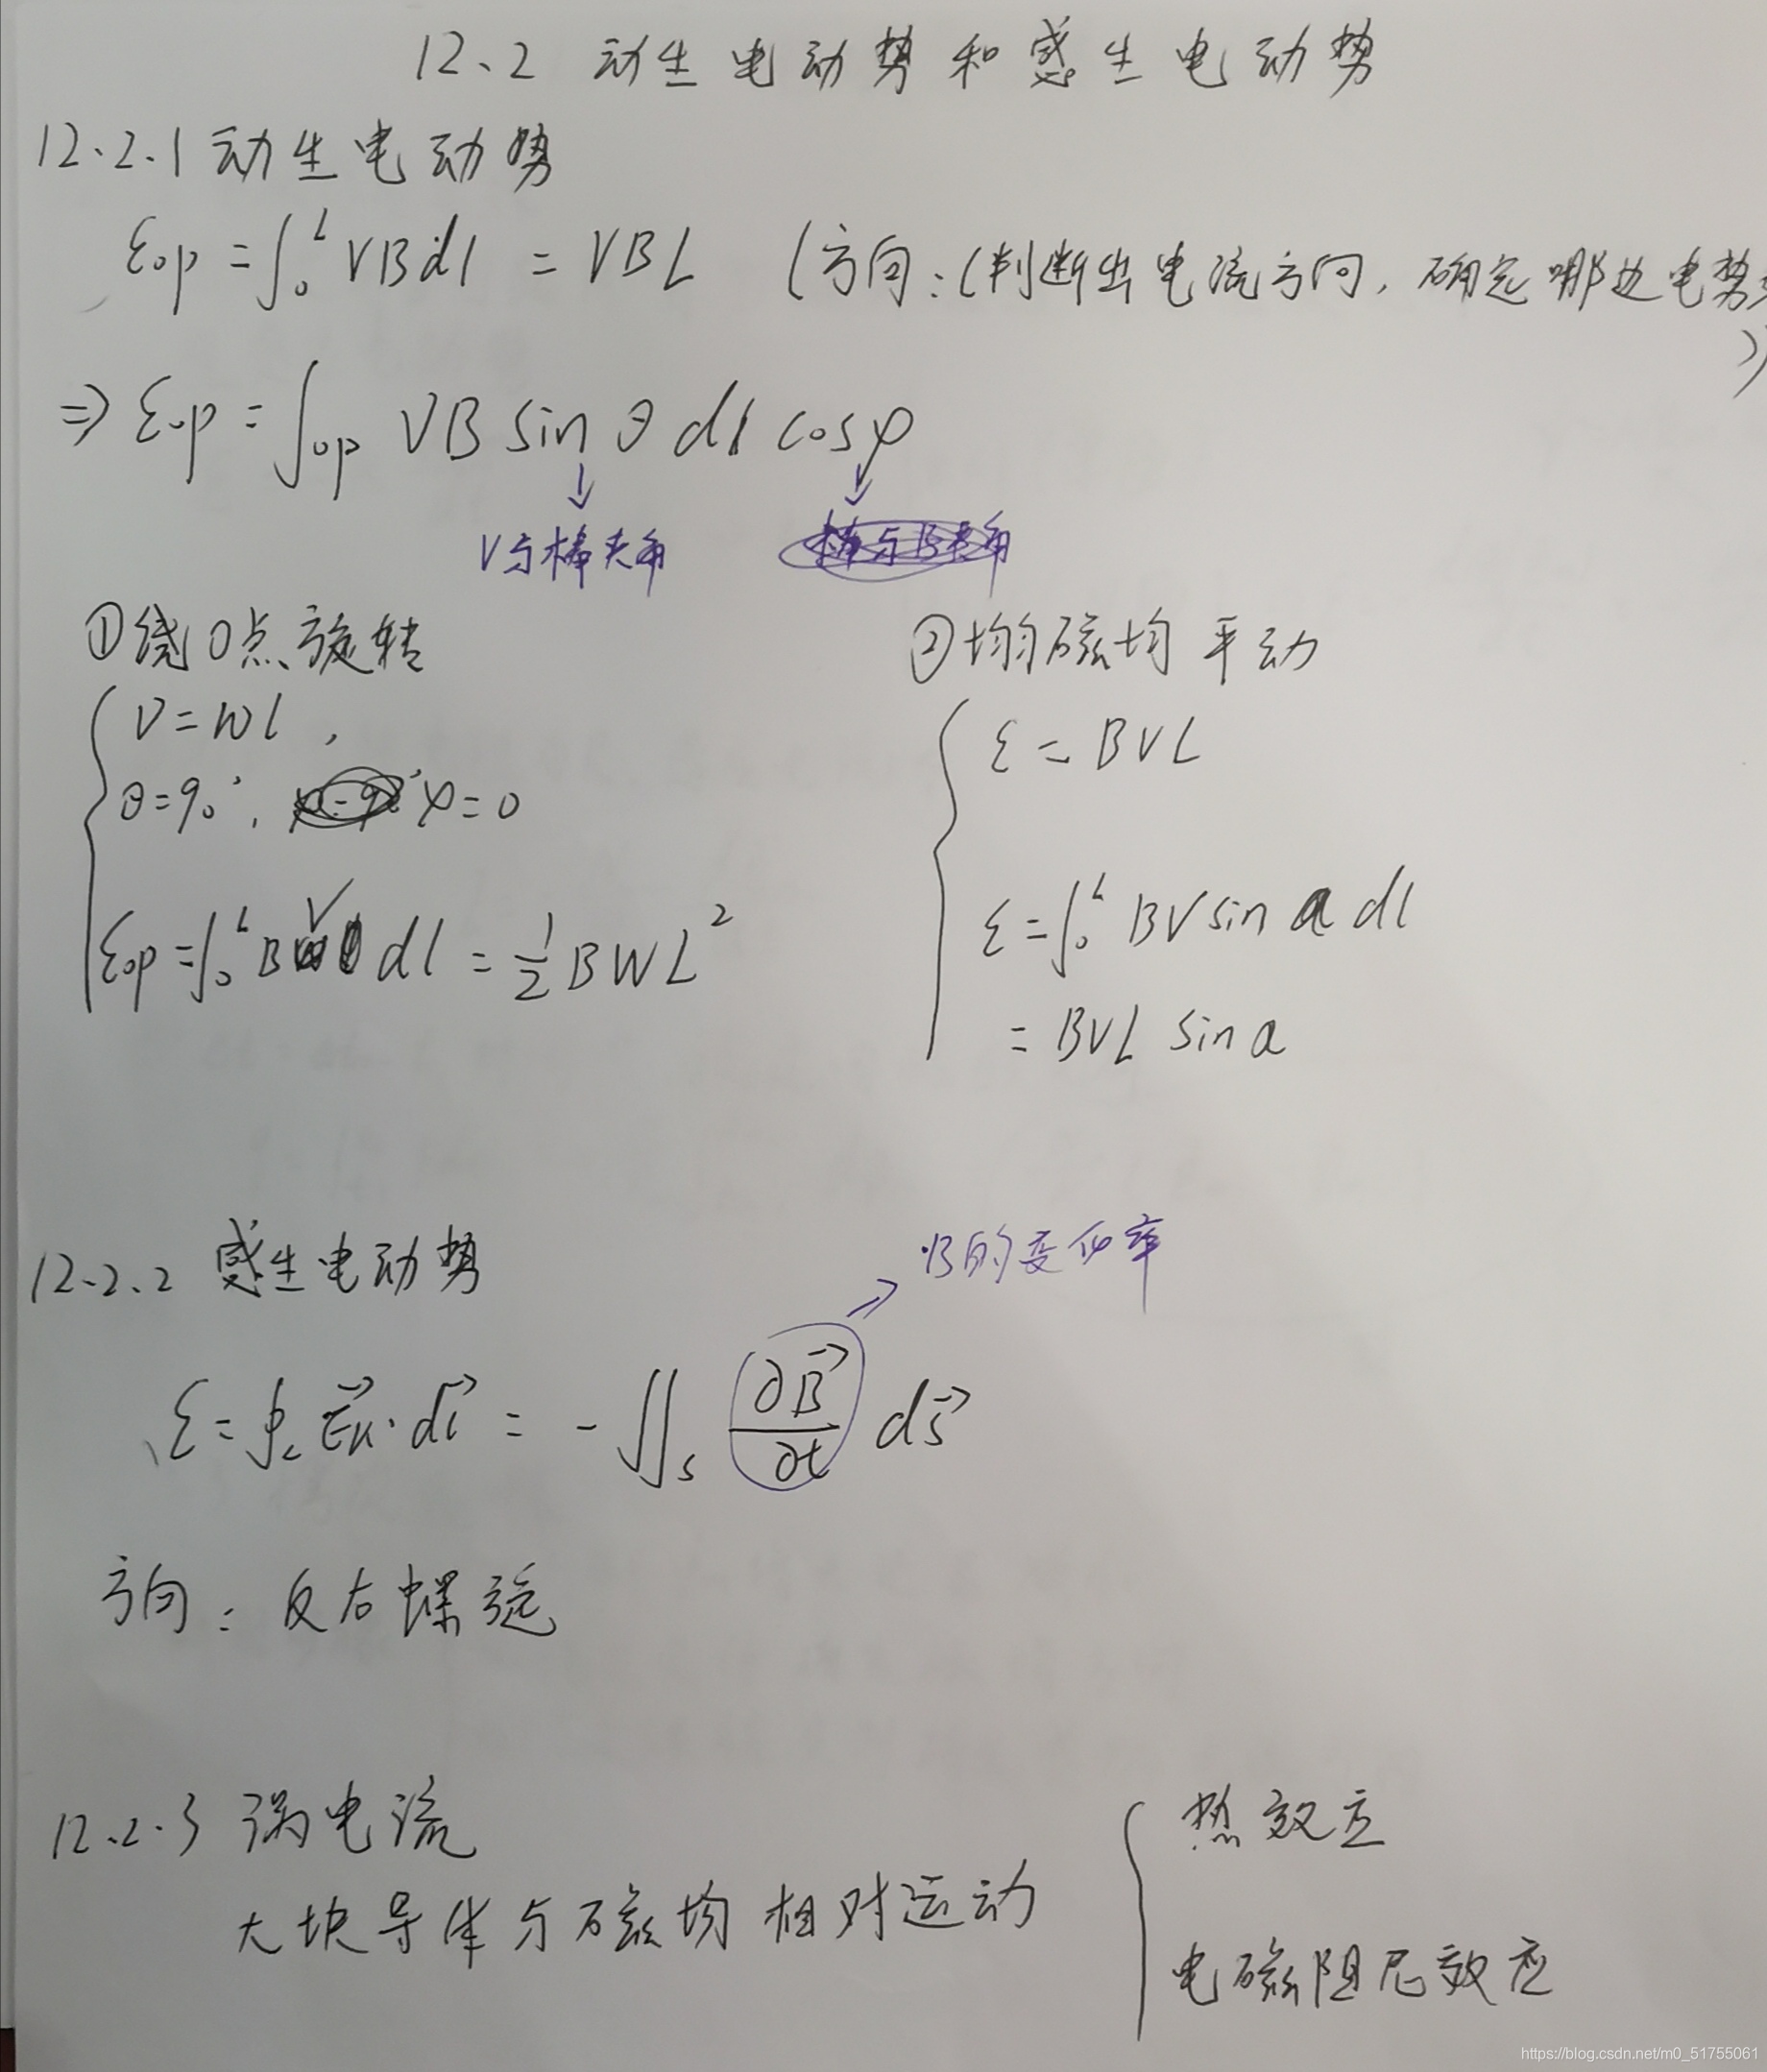 12.2 动生电动势和感生电动势
12.2.1 动生电动势
ε_op = ∫₀ᴸ VBdl = VBL (方向:(判断出电流方向,确定哪边电势
))
⇒ ε_op = ∫_op VB sin θ dl cosφ
V与棒夹角
①绕O点旋转
V=Wl,
θ=90°, φ=0
ε_op = ∫₀ᴸ BV dl = 1/2 BWL²
②均匀磁均平动
ε = BVL
ε = ∫₀ᴸ BV sin a dl
= BVL sin a
12.2.2 感生电动势
B的变化率
ε = ∮_L E⃗k·dl⃗ = -∬_s ∂B⃗/∂t ds⃗
方向:反右螺旋
12.2.3 涡电流
大块导体与磁均相对运动
热效应
电磁阻尼效应
https://blog.csdn.net/m0_51755061